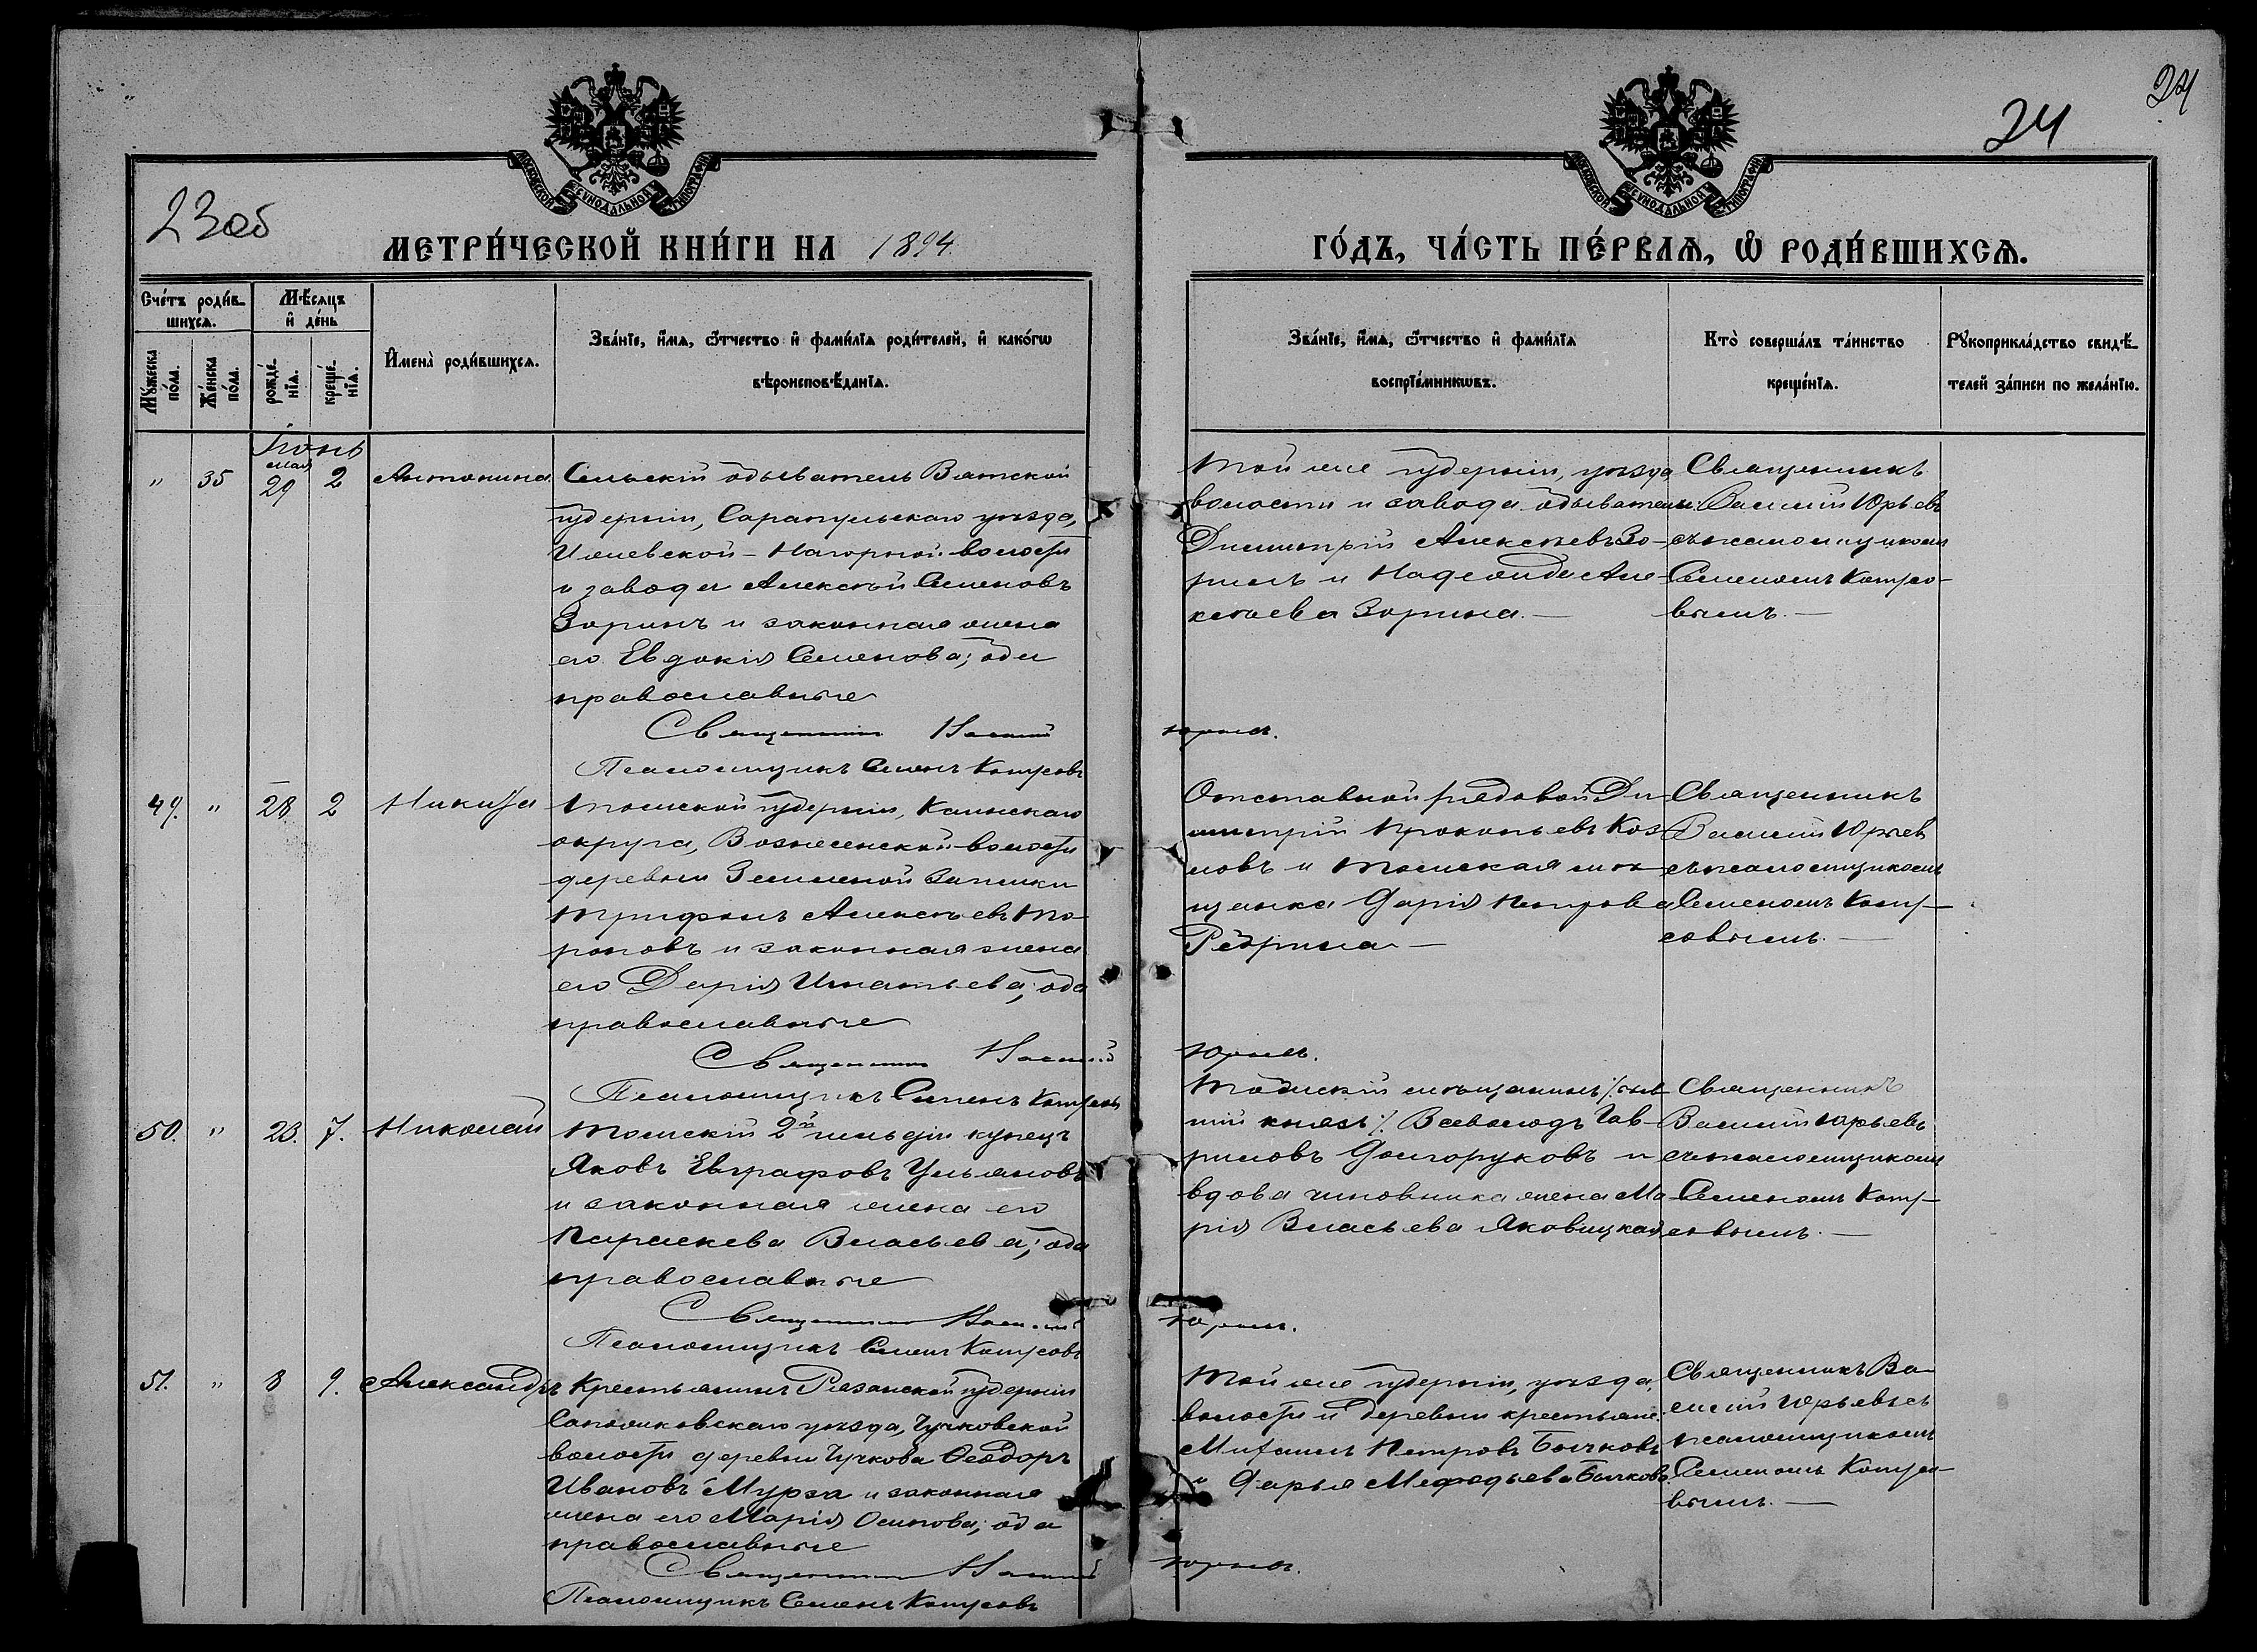 24
24
23об
МОСКОВСКОЙ СѴНОДАЛЬНОЙ ТИПОГРАФІИ
МОСКОВСКОЙ СѴНОДАЛЬНОЙ ТИПОГРАФІИ
МЕТРИ́ЧЕСКОЙ КНИ́ГИ НА 1894
ГО́ДЪ, ЧА́СТЬ ПЕ́РВАѦ, Ѡ҆ РОДИ́ВШИХСѦ.
Сче́тъ роди́в-
шихсѧ.
Мѣ́сѧцъ
и҆ де́нь
Мꙋ́жеска
по́ла.
Же́нска
по́ла.
рожде́-
нїѧ.
креще́-
нїѧ.
И҆мена̀ роди́вшихсѧ.
Зва́нїе, и҆́мѧ, ѻ҆́тчество и҆ фами́лїѧ роди́телей, и҆ како́гѡ
вѣроисповѣ́данїѧ.
Зва́нїе, и҆́мѧ, ѻ҆́тчество и҆ фами́лїѧ
воспрїе́мникѡвъ.
Кто̀ соверша́лъ та́инство
креще́нїѧ.
Рꙋкоприкла́дство свидѣ́-
телей за́писи по жела́нїю.
Іюнь
мая
" 35 29 2 Антонина
Сельскій обыватель Вятской
губерніи, Сарапульскаго уѣзда,
Ижевской-Нагорной волости
и завода Алексѣй Семеновъ
Зоринъ и законная жена
его Евдокія Семенова; оба
православные
Священникъ Василій
Юрьевъ.
Псаломщикъ Семенъ Котусовъ
Той же губерніи, уѣзда
волости и завода обыватели:
Димитрій Алексѣевъ Зо-
ринъ и Надежда Але-
ксѣева Зорина. —
Священникъ
Василій Юрьевъ
съ псаломщикомъ
Семеномъ Котусо-
вымъ. —
49. " 28 2 Никита
Томской губерніи, Каинскаго
округа, Вознесенской волости
деревни Зиминой Заимки
Трифонъ Алексѣевъ То-
роповъ и законная жена
его Дарія Игнатьева; оба
православные
Священникъ Василій
Юрьевъ.
Псаломщикъ Семенъ Котусовъ
Отставной рядовой Ди-
митрій Прокопьевъ Коз-
ловъ и Томская мѣ-
щанка Дарія Петрова
Ребрина —
Священникъ
Василій Юрьевъ
съ псаломщикомъ
Семеномъ Коту-
совымъ. —
50. " 23. 7. Николай
Томскій 2й гильдіи купецъ
Яковъ Евграфовъ Ульяновъ
и законная жена его
Параскева Власьева; оба
православные
Священникъ Василій
Юрьевъ.
Псаломщикъ Семенъ Котусовъ
Томскій мѣщанинъ /быв-
шій князь/ Всеволодъ Гав-
риловъ Долгоруковъ и
вдова чиновника жена Ма-
рія Власьева Яковицкая
Священникъ
Василій Юрьевъ
съ псаломщикомъ
Семеномъ Коту-
совымъ. —
51. " 8 9. Александръ
Крестьянинъ Рязанской губерніи
Сапожковскаго уѣзда, Чучковской
волости деревни Чучкова Ѳеодоръ
Ивановъ Мурза и законная
жена его Марія Осипова; оба
православные
Священникъ Василій
Юрьевъ.
Псаломщикъ Семенъ Котусовъ
Той же губерніи, уѣзда,
волости и деревни крестьяне:
Михаилъ Петровъ Бычковъ
и Дарья Меѳодьева Бычкова.
Священникъ Ва-
силій Юрьевъ съ
псаломщикомъ
Семеномъ Котусо-
вымъ. —